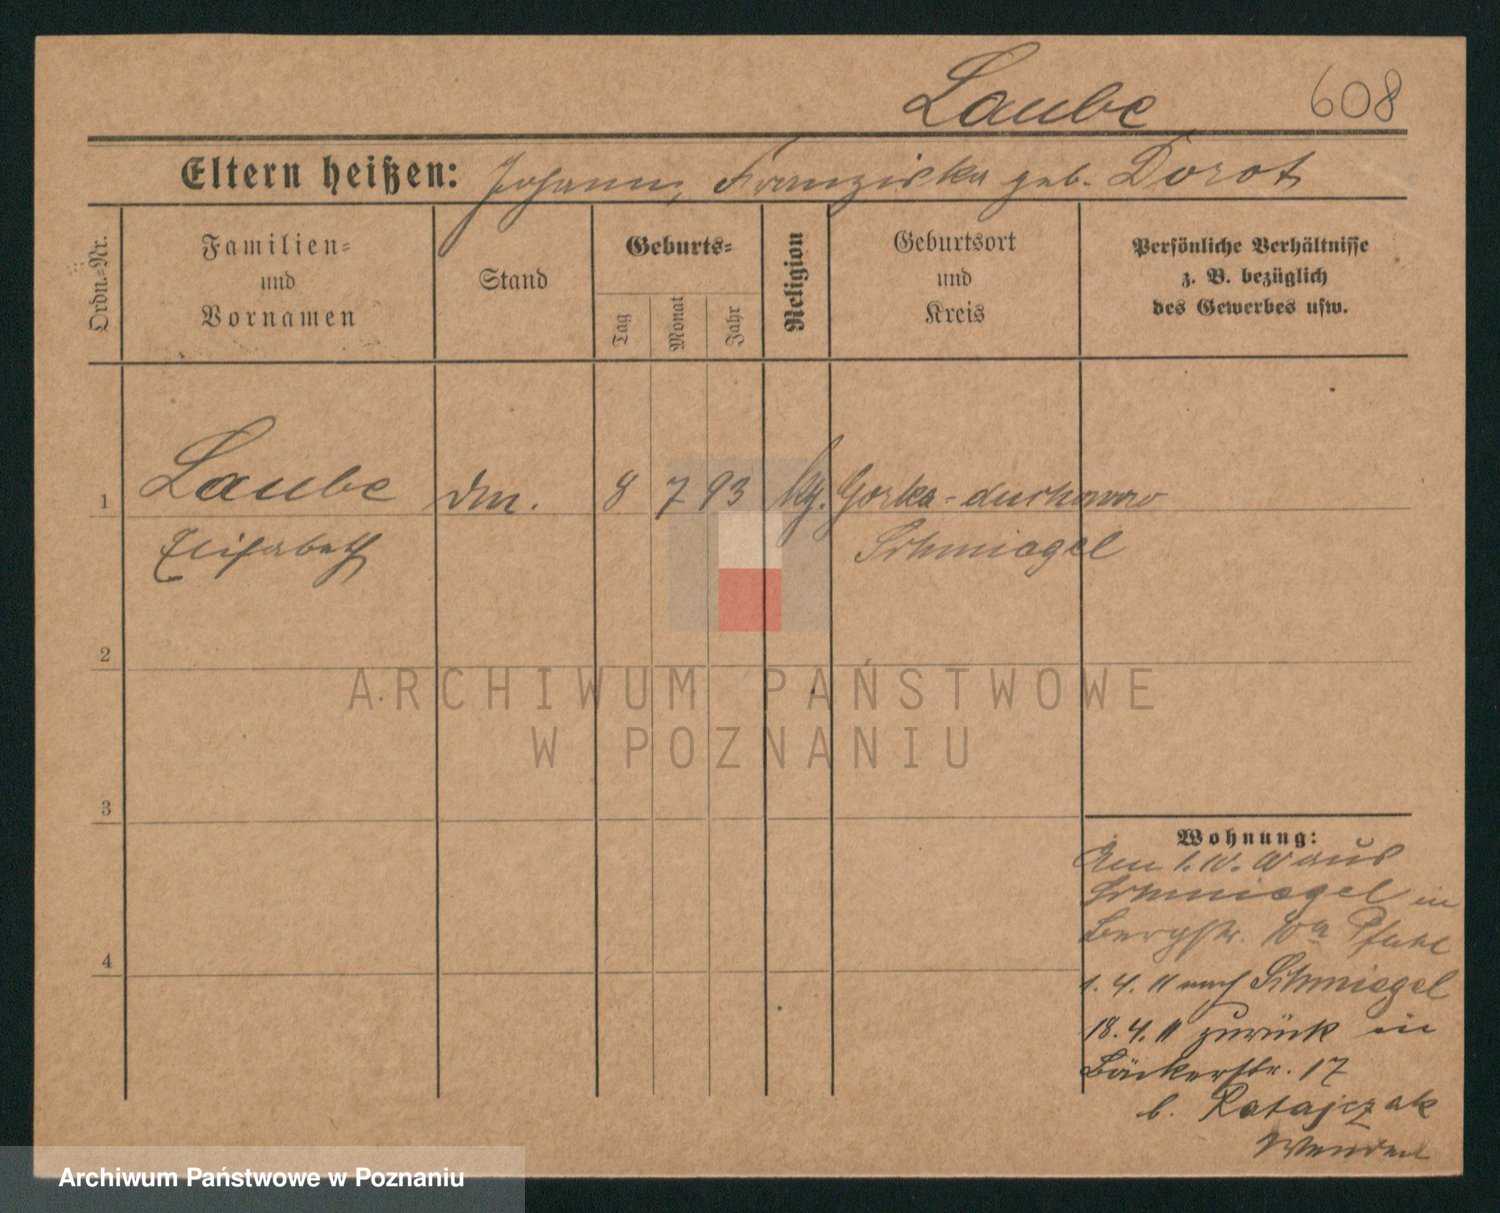 Laube 608
Eltern heißen: Johann, Franziska geb. Dorot
Ordn.-Nr.
Familien-
und
Vornamen
Stand
Geburts-
Tag
Monat
Jahr
Religion
Geburtsort
und
Kreis
Persönliche Verhältnisse
z. B. bezüglich
des Gewerbes usw.
1 Laube 8 7 93 Gorka-duchowna
Elisabeth Schmiegel
2
3
4
Wohnung:
Am 1. IV. 10 aus
Schmiegel in
Bergstr. 10a
1. 4. 11 nach Schmiegel
18. 4. 11 zurück in
Bäckerstr. 17
b. Ratajczak
Wenden
ARCHIWUM PAŃSTWOWE
W POZNANIU
Archiwum Państwowe w Poznaniu